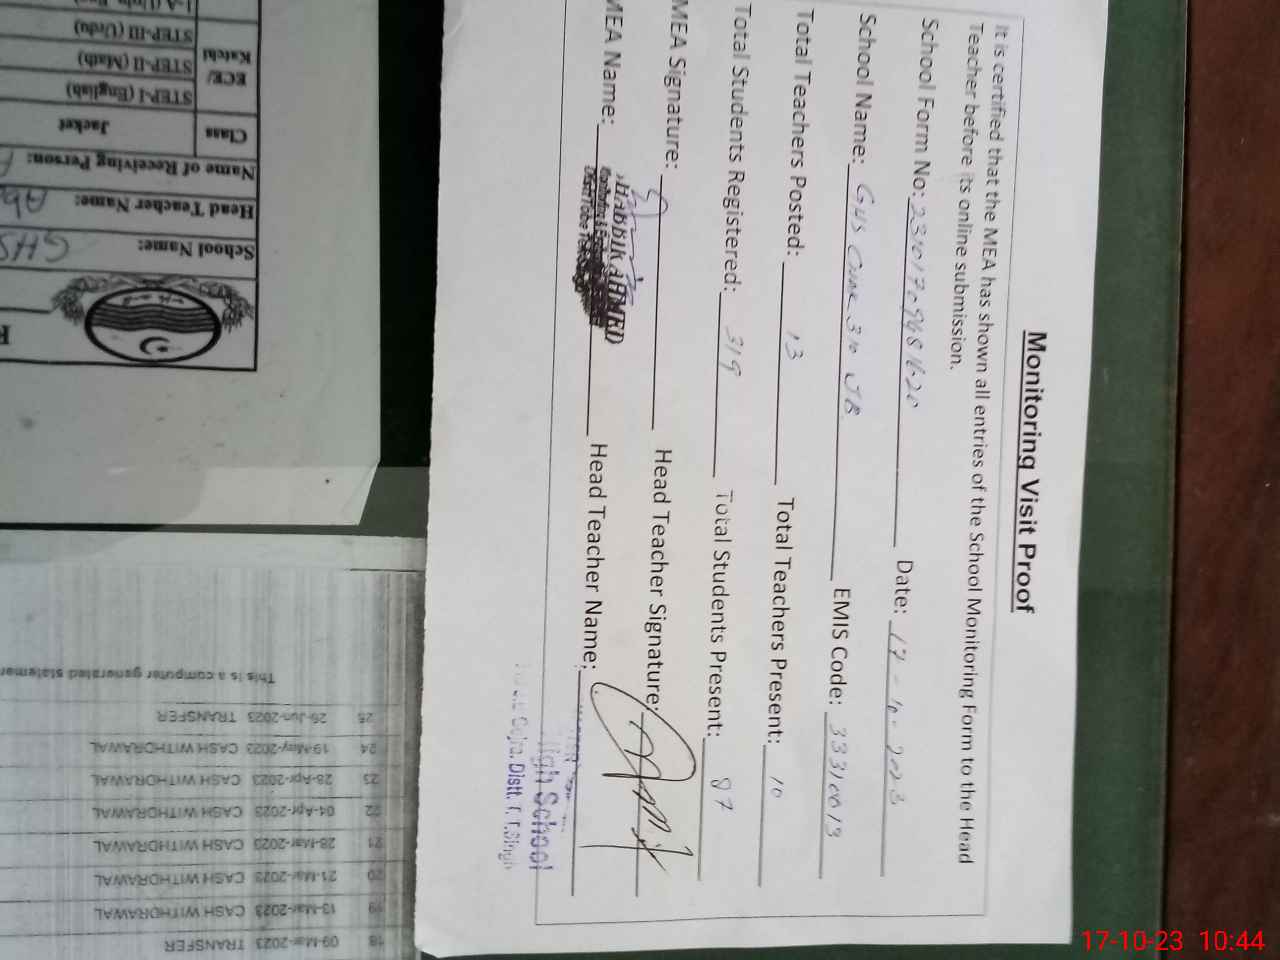 Monitoring Visit Proof
It is certified that the MEA has shown all entries of the School Monitoring Form to the Head
Teacher before its online submission.
School Form No: Date: 17-10-2023
School Name: GHS Chak 310 JB EMIS Code: 33310013
Total Teachers Posted: 13 Total Teachers Present: 10
Total Students Registered: 319 Total Students Present: 87
MEA Signature: Head Teacher Signature:
MEA Name: Head Teacher Name:
AHMED
High School
Gojra. Distt. T.T.Singh
School Name: GHS
Head Teacher Name:
Name of Receiving Person:
Class Jacket
ECE/ Katchi
STEP-I (English)
STEP-II (Math)
STEP-III (Urdu)
This is a computer generated
25 26-Jun-2023 TRANSFER
24 19-May-2023 CASH WITHDRAWAL
23 28-Apr-2023 CASH WITHDRAWAL
22 04-Apr-2023 CASH WITHDRAWAL
21 28-Mar-2023 CASH WITHDRAWAL
20 21-Mar-2023 CASH WITHDRAWAL
19 13-Mar-2023 CASH WITHDRAWAL
18 09-Mar-2023 TRANSFER
17-10-23 10:44